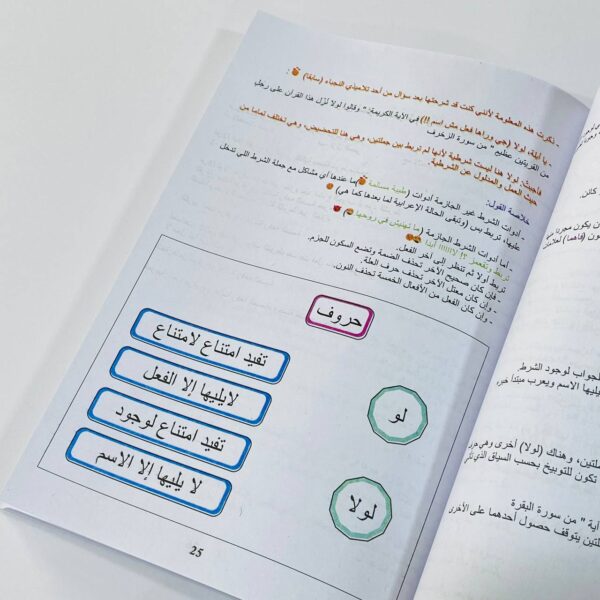 - ذكرت هذه المعلومة لأنني كنت قد شرحتها بعد سؤال من أحد تلاميذي النجباء (سابقا) :
- يا أبلة، لولا (جي وراها فعل مش اسم !!!) في الآية الكريمة: " وقالوا لولا نُزل هذا القرآن على رجلٍ
من القريتين عظيم " من سورة الزخرف
فأجبتُ: لولا هنا ليست شرطية لأنها لم تربط بين جملتين، وهي هنا للتحضيض، وهي تختلف تماما من
حيث العمل والمدلول عن الشرطية.
خلاصة القول:
- أدوات الشرط غير الجازمة أدوات (طيبة مسالمة) ما عندها أي مشاكل مع جملة الشرط اللي تدخل
عليها، تربط بس (وتبقى الحالة الإعرابية لما بعدها كما هي)
- أما أدوات الشرط الجازمة (ما تهنيش في روحها)
تربط وتقعمز ؟! لااااااا أبدا
تربط أولا ثم تنظر إلى آخر الفعل.
- فإن كان صحيح الآخر تحذف الضمة وتضع السكون للجزم.
- وإن كان معتل الآخر تحذف حرف العلة.
- وإن كان الفعل من الأفعال الخمسة تحذف النون.
حروف
تفيد امتناع لامتناع
لايليها إلا الفعل
لو
تفيد امتناع لوجود
لا يليها إلا الاسم
لولا
25
كان.
يكون مجزما
(فاهما) لعلامات
الجواب لوجود الشرط
يليها الاسم ويعرب مبتدأ خبره
ملتين، وهناك (لولا) أخرى وهي
تكون للتوبيخ بحسب السياق الذي
آية " من سورة البقرة
ملتين يتوقف حصول أحدهما على الأخرى